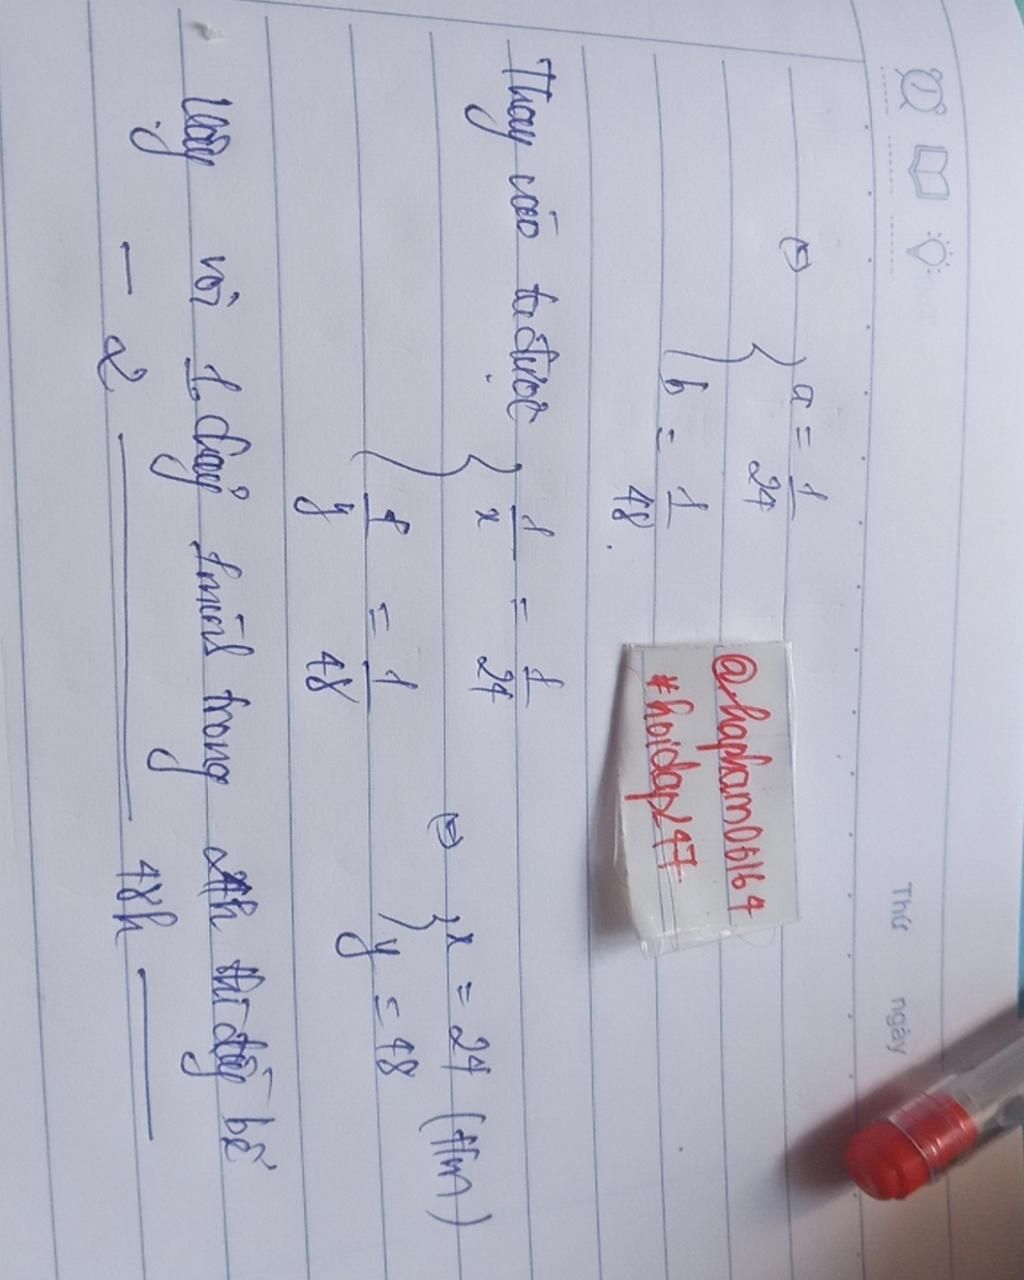 Thứ ngày
⇔ { a = 1/24
b = 1/48
@hapham06164
#hoidap247
Thay vào ta được { 1/x = 1/24 ⇔ { x = 24 (tm)
1/y = 1/48 y = 48
Vậy vòi 1 chảy 1 mình trong 24h thì đầy bể
— 2 — 48h —